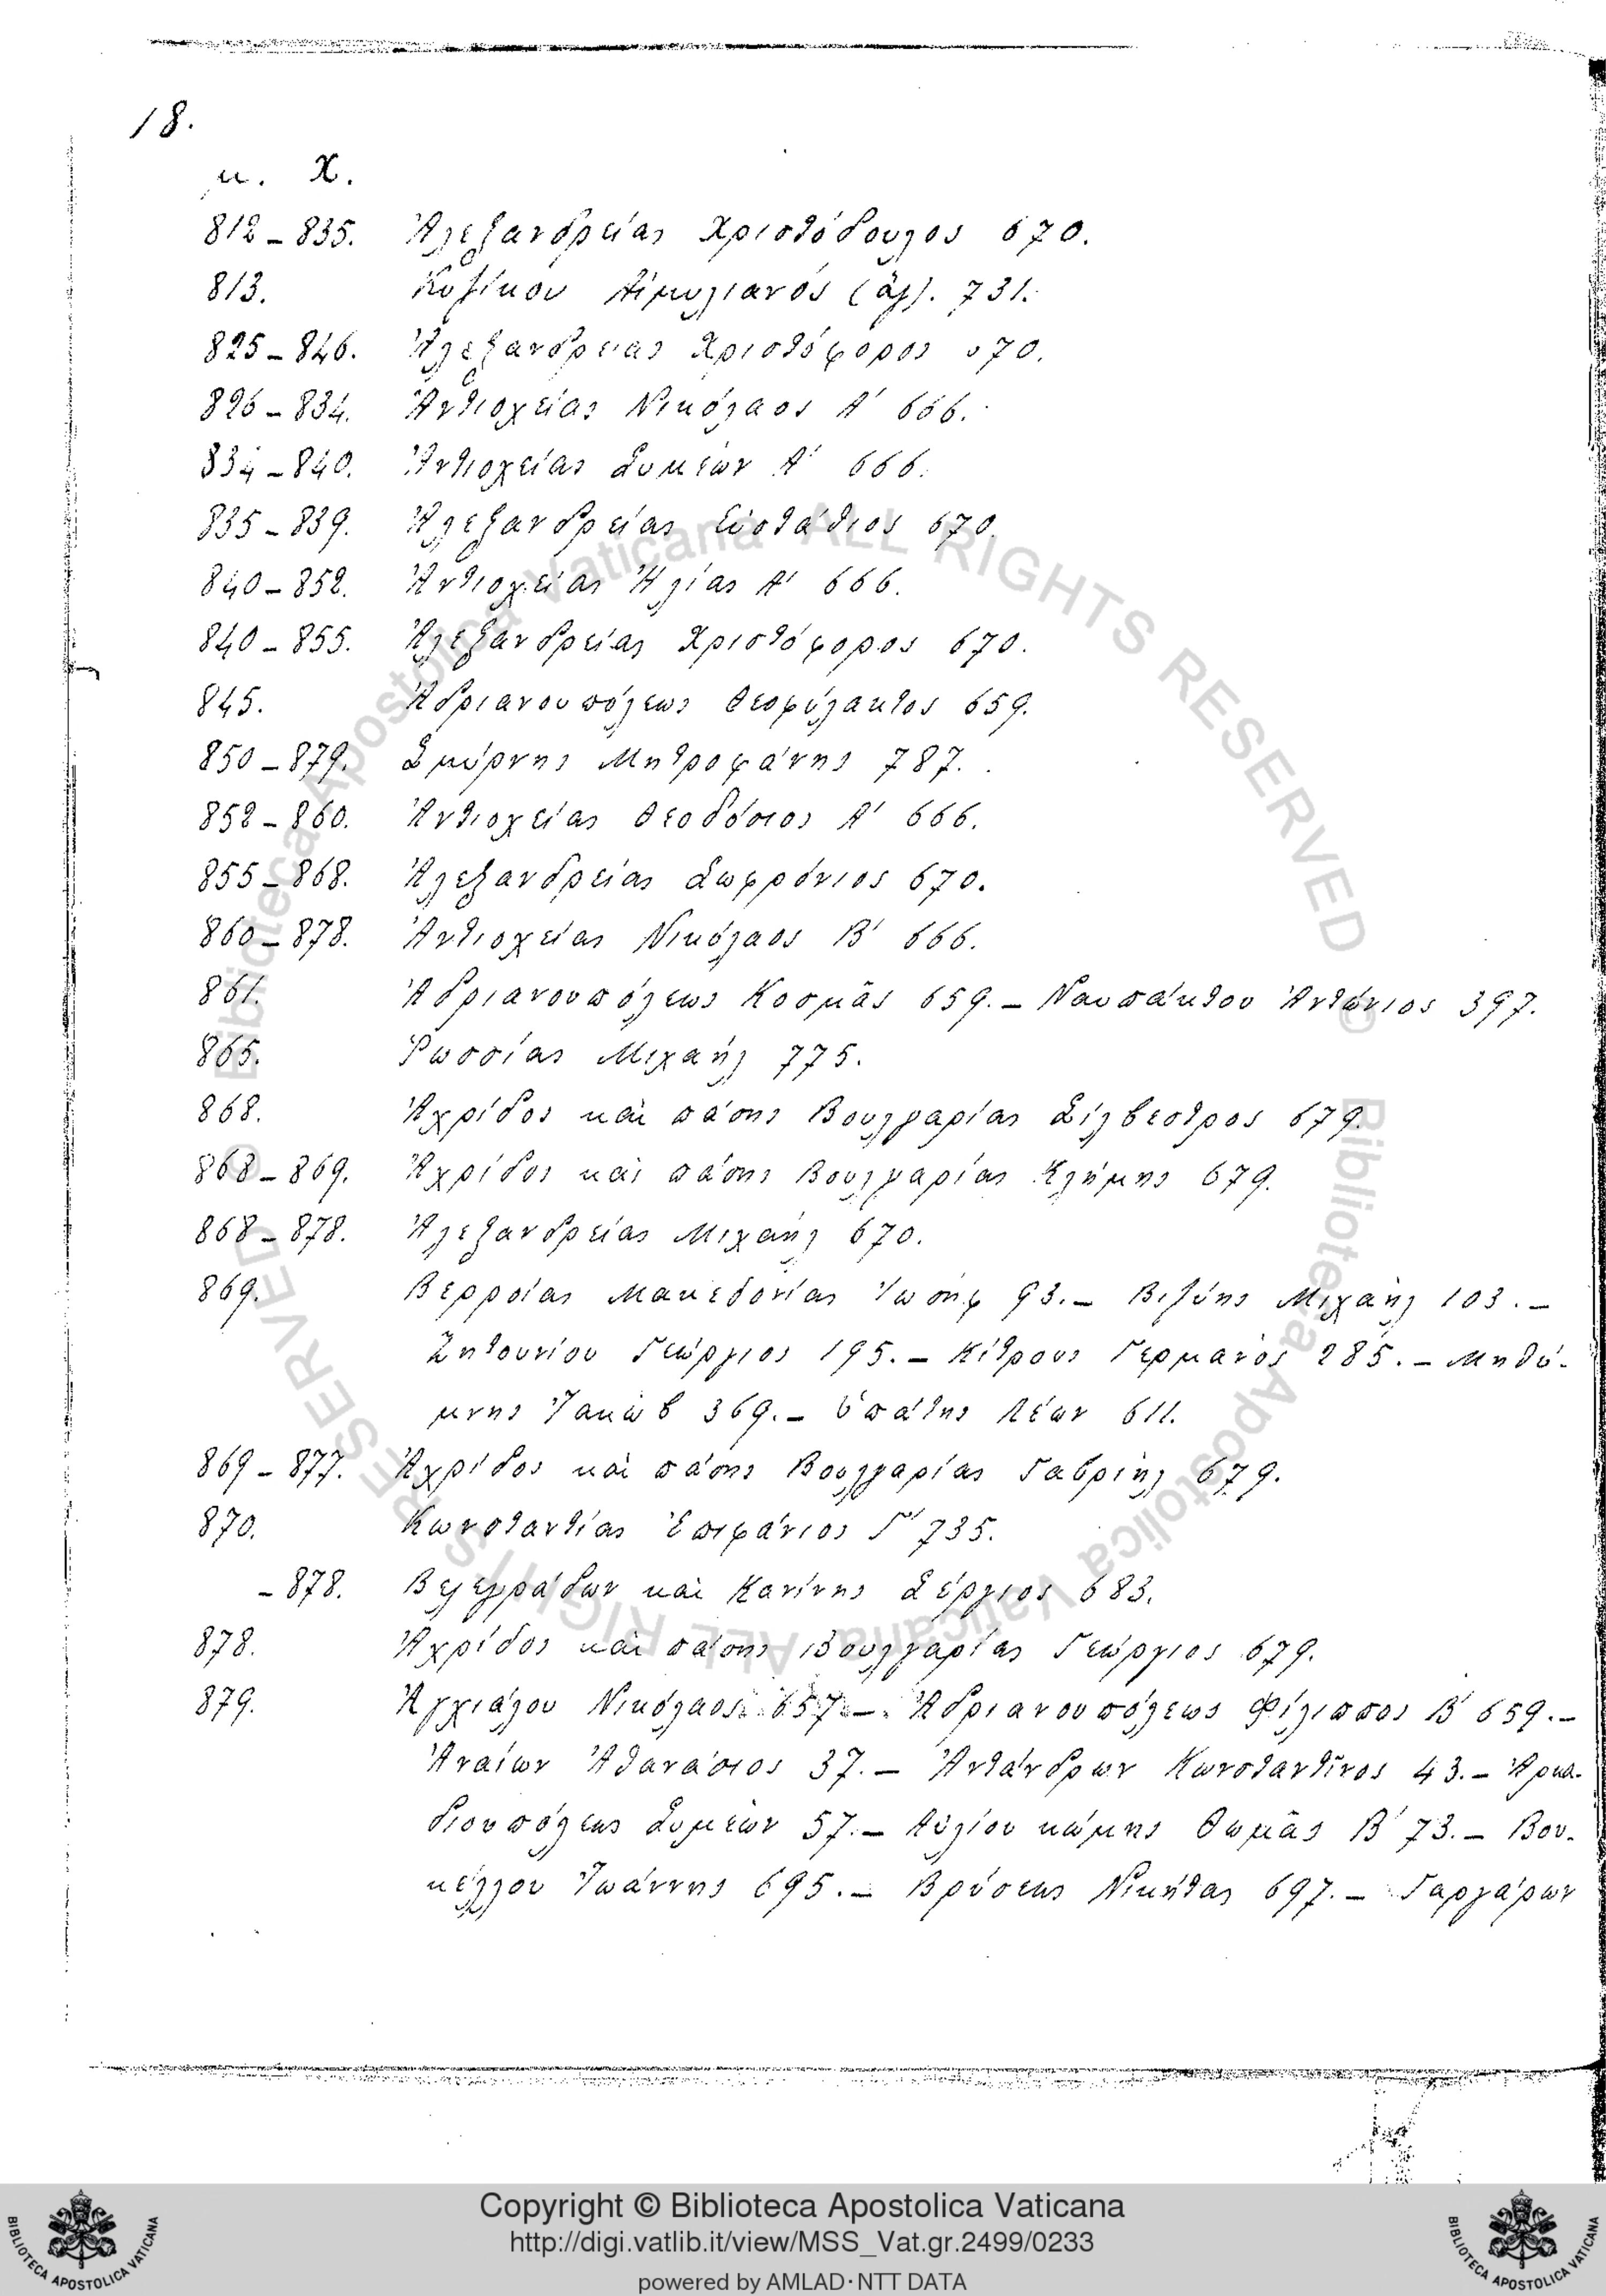 18.
μ. Χ.
812 - 835. Ἀλεξανδρείας Χριστόδουλος 670.
813. Κυζίκου Αἰμυλιανός (ἅγ). 731.
825 - 846. Ἀλεξανδρείας Χριστόφορος 670.
826 - 834. Ἀντιοχείας Νικόλαος Α' 666.
834 - 840. Ἀντιοχείας Συμεών Α' 666.
835 - 839. Ἀλεξανδρείας Εὐστάθιος 670.
840 - 852. Ἀντιοχείας Ἠλίας Α' 666.
840 - 855. Ἀλεξανδρείας Χριστόφορος 670.
845. Ἀδριανουπόλεως Θεοφύλακτος 659.
850 - 879. Σμύρνης Μητροφάνης 787.
852 - 860. Ἀντιοχείας Θεοδόσιος Α' 666.
855 - 868. Ἀλεξανδρείας Σωφρόνιος 670.
860 - 878. Ἀντιοχείας Νικόλαος Β' 666.
861. Ἀδριανουπόλεως Κοσμᾶς 659. - Ναυπάκτου Ἀντώνιος 397.
865. Ῥωσσίας Μιχαήλ 775.
868. Ἀχρίδος καὶ πάσης Βουλγαρίας Σίλβεστρος 679.
868 - 869. Ἀχρίδος καὶ πάσης Βουλγαρίας Κλήμης 679.
868 - 878. Ἀλεξανδρείας Μιχαήλ 670.
869. Βερροίας Μακεδονίας Ἰωσήφ 93. - Βιζύης Μιχαὴλ 103. -
Ζητουνίου Γεώργιος 195. - Κίτρους Γερμανὸς 285. - Μηθύ-
μνης Ἰακὼβ 369. - Ὑπάτης Λέων 611.
869 - 877. Ἀχρίδος καὶ πάσης Βουλγαρίας Γαβριὴλ 679.
870. Κωνσταντίας Ἐπιφάνιος Γ' 735.
- 878. Βελεγράδων καὶ Κανίνης Σέργιος 683.
878. Ἀχρίδος καὶ πάσης Βουλγαρίας Γεώργιος 679.
879. Ἀγχιάλου Νικόλαος 657 - Ἀδριανουπόλεως Φίλιππος Β' 659. -
Ἀναίων Ἀθανάσιος 37. - Ἀντάνδρων Κωνσταντῖνος 43. - Ἀρκα-
διουπόλεως Συμεὼν 57. - Αὐλίου κώμης Θωμᾶς Β' 73. - Βου-
κέλλου Ἰωάννης 695. - Βρύσεως Νικήτας 697. - Γαργάρων
© Biblioteca Apostolica Vaticana ALL RIGHTS RESERVED
© Biblioteca Apostolica Vaticana ALL RIGHTS RESERVED
Copyright © Biblioteca Apostolica Vaticana
http://digi.vatlib.it/view/MSS_Vat.gr.2499/0233
powered by AMLAD·NTT DATA
BIBLIOTECA APOSTOLICA VATICANA
BIBLIOTECA APOSTOLICA VATICANA